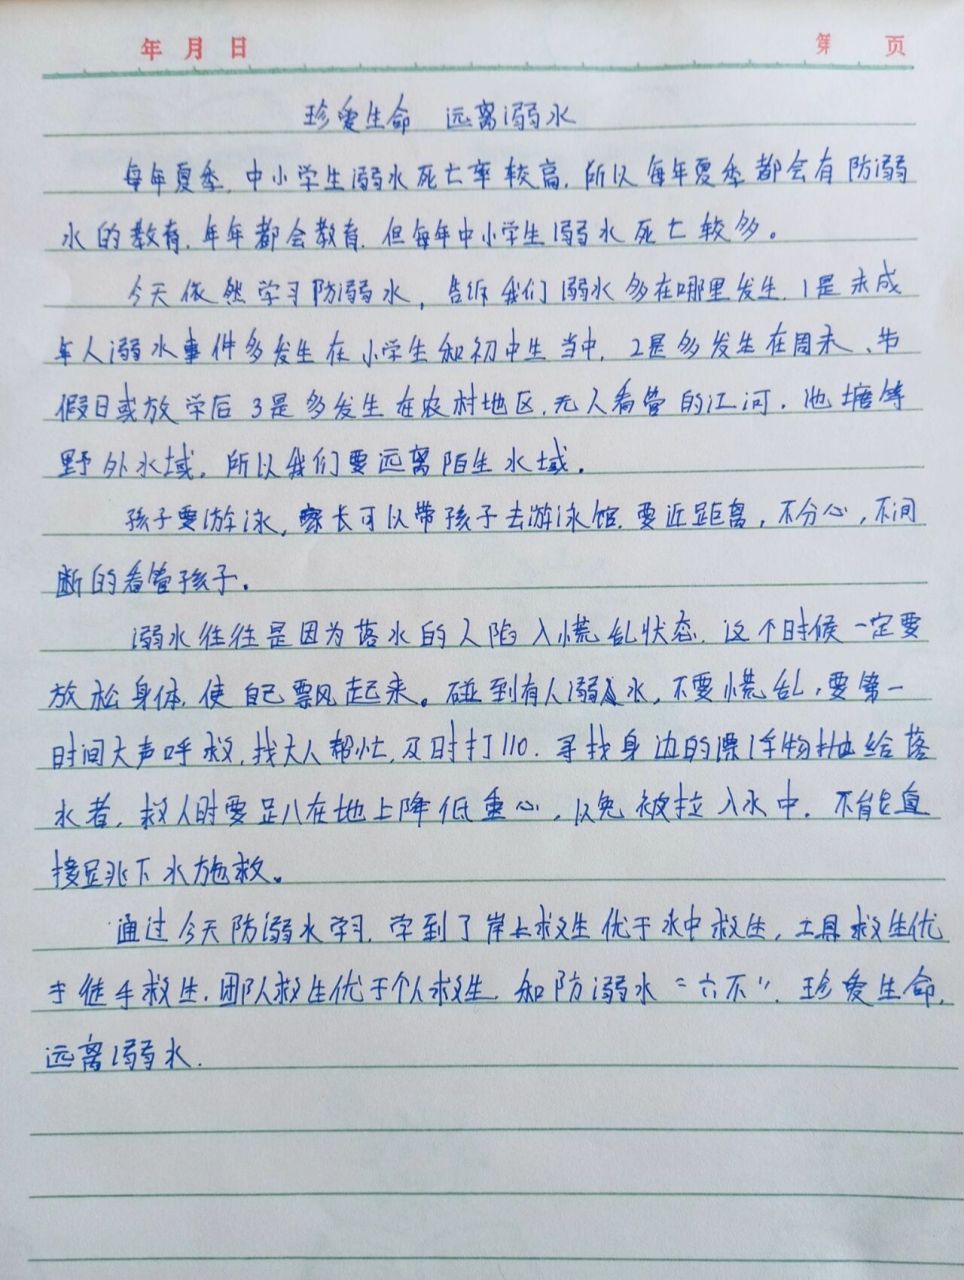 年 月 日 第 页
珍爱生命 远离溺水
每年夏季,中小学生溺水死亡率较高,所以每年夏季都会有防溺
水的教育,年年都会教育,但每年中小学生溺水死亡较多。
今天依然学习防溺水,告诉我们溺水多在哪里发生,1是未成
年人溺水事件多发生在小学生和初中生当中,2是多发生在周末、节
假日或放学后 3是多发生在农村地区,无人看管的江河,池塘等
野外水域,所以我们要远离陌生水域。
孩子要游泳,家长可以带孩子去游泳馆,要近距离,不分心,不间
断的看管孩子。
溺水往往是因为落水的人陷入慌乱状态,这个时候一定要
放松身体,使自己飘起来。碰到有人溺水,不要慌乱,要第一
时间大声呼救,找大人帮忙,及时打110.寻找身边的漂浮物抛给落
水者,救人时要趴在地上降低重心,以免被拉入水中。不能直
接跳下水施救。
通过今天防溺水学习,学到了岸上救生优于水中救生,工具救生优
于徒手救生,团队救生优于个人救生,和防溺水“六不”,珍爱生命,
远离溺水.